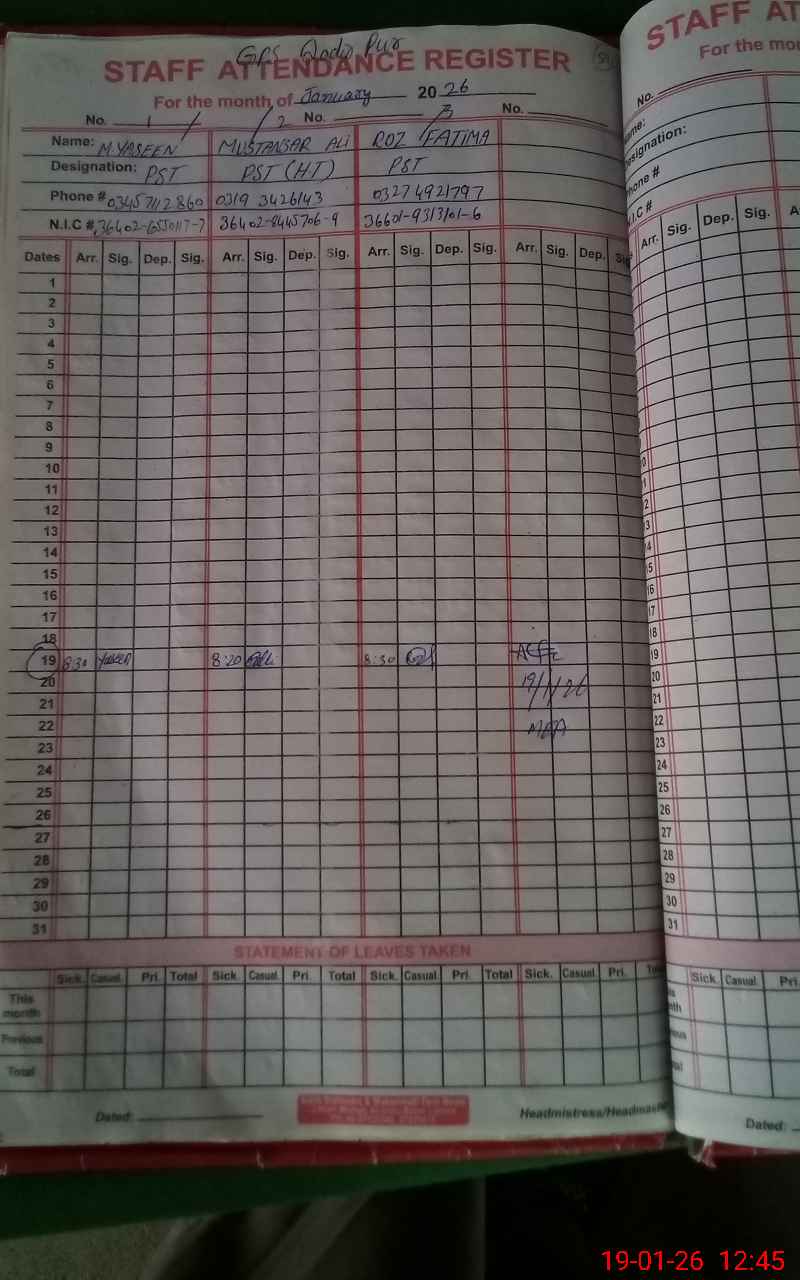 GPS Qadir Pur
STAFF ATTENDANCE REGISTER
For the month of January 20 26
No. 1 2 No. 3 No.
Name: M.YASEEN MUSTANSAR ALI ROZ FATIMA
Designation: PST PST (HT) PST
Phone # 03457112860 0319 3426143 03274921797
N.I.C #. 36402-6550117-7 36402-8445706-9 36601-9313101-6
Dates Arr. Sig. Dep. Sig. Arr. Sig. Dep. Sig. Arr. Sig. Dep. Sig. Arr. Sig. Dep. Sig.
1
2
3
4
5
6
7
8
9
10
11
12
13
14
15
16
17
18
19 8:30 Yaseen 8:20 8:30
20 19/1/26
21
22 MEA
23
24
25
26
27
28
29
30
31
STATEMENT OF LEAVES TAKEN
Sick. Casual. Pri. Total Sick. Casual. Pri. Total Sick. Casual. Pri. Total Sick. Casual. Pri.
This month
Previous
Total
Dated: Headmistress/Headmaster
STAFF AT
For the mo
No.
ame:
esignation:
hone #
.I.C #
Arr. Sig. Dep. Sig. A
12
13
14
15
16
17
18
19
20
21
22
23
24
25
26
27
28
29
30
31
Sick. Casual. Pri
Dated:
19-01-26 12:45